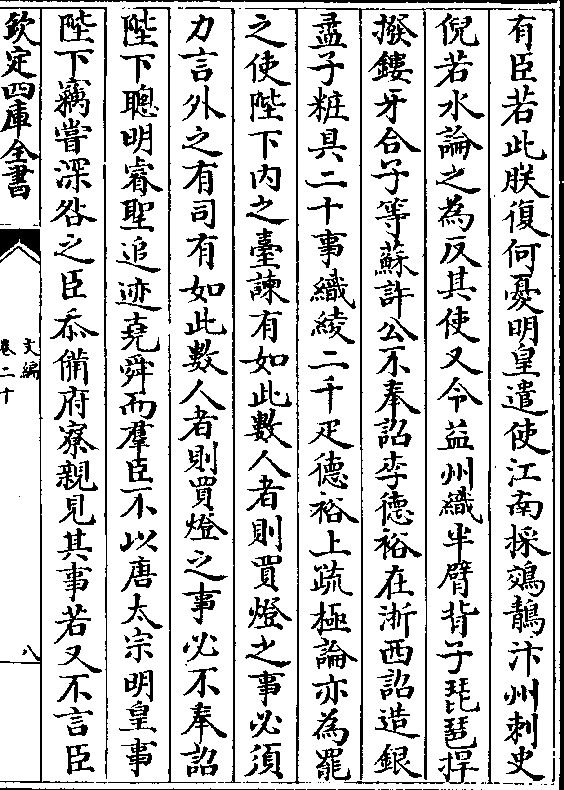 有臣若此朕復何憂明皇遣使江南採鵁鶄汴州刺史
倪若水論之為反其使又令益州織半臂背子琵琶捍
撥鏤牙合子等蘇許公不奉詔李德裕在浙西詔造銀
盝子粧具二十事織綾二千疋德裕上疏極論亦為罷
之使陛下內之臺諫有如此數人者則買燈之事必須
力言外之有司有如此數人者則買燈之事必不奉詔
陛下聰明睿聖追迹堯舜而羣臣不以唐太宗明皇事
陛下竊嘗深咎之臣忝備府寮親見其事若又不言臣
欽定四庫全書
文編
卷二十
八